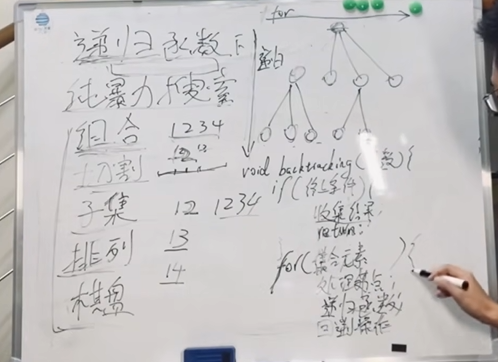 递归函数下
纯暴力搜索
组合 1234
切割
子集 12 1234
排列 13
14
棋盘
for
递归
void backtracking(参数){
if(终止条件){
收集结果;
return;
for(集合元素){
处理节点;
递归函数;
回溯操作